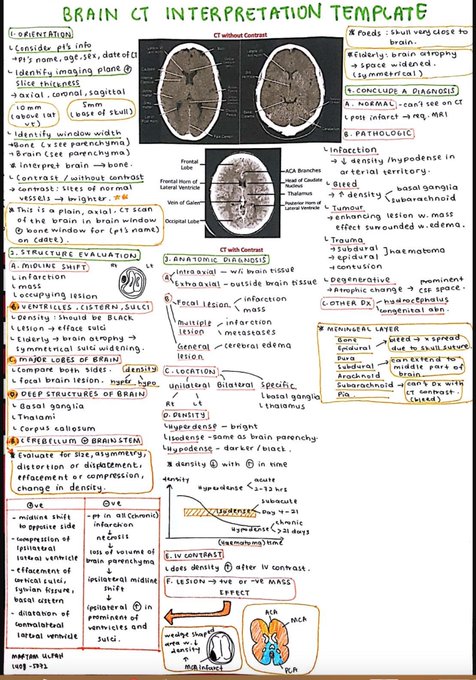 BRAIN CT INTERPRETATION TEMPLATE
1. ORIENTATION
Consider pt's info
→ Pt's name, age, sex, date of CT
Identify imaging plane &
slice thickness
→ axial, coronal, sagittal
10mm
(above lat v)
5mm
(base of skull)
Identify window width
→ Bone (x see parenchyma)
→ Brain (see parenchyma)
* interpret brain → bone.
Contrast / without contrast
→ contrast: sites of normal
vessels → brighter.
* This is a plain, axial, CT scan
of the brain in brain window
& bone window for (pt's name)
on (date).
2. STRUCTURE EVALUATION
A. MIDLINE SHIFT
Rt
Lt
infarction
mass
occupying lesion
B VENTRICLES, CISTERN, SULCI
Density: should be BLACK
Lesion → efface sulci
Elderly → brain atrophy →
symmetrical sulci widening.
C MAJOR LOBES OF BRAIN
Compare both sides.
density
Focal brain lesion.
hyper
hypo
D DEEP STRUCTURES OF BRAIN
Basal ganglia
Thalami
Corpus callosum
E CEREBELLUM & BRAINSTEM
* Evaluate for size, asymmetry,
distortion or displacement,
effacement or compression,
change in density.
⊕ve
- midline shift
to opposite side
- compression of
ipsilateral
lateral ventricle
- effacement of
cortical sulci,
sylvian fissure,
basal cistern
- dilatation of
contralateral
lateral ventricle
⊖ve
- pt in all (chronic)
infarction
↓
necrosis
↓
loss of volume of
brain parenchyma
↓
ipsilateral midline
shift
↓
ipsilateral ↑ in
prominent of
ventricles and
sulci.
MARYAM ULFAH
CT without Contrast
Frontal
Lobe
Frontal Horn of
Lateral Ventricle
Vein of Galen
Occipital Lobe
ACA Branches
Head of Caudate
Nucleus
Thalamus
Posterior Horn of
Lateral Ventricle
CT with Contrast
3. ANATOMIC DIAGNOSIS
A Intraaxial - w/i brain tissue
Extraaxial - outside brain tissue
B Focal lesion
infarction
mass
Multiple
lesion
infarction
metastases
General
lesion
- cerebral edema
C. LOCATION
Unilateral
Bilateral
Specific
Rt
Lt
basal ganglia
thalamus
D. DENSITY
Hyperdense - bright
Isodense - same as brain parenchy.
Hypodense - darker / black.
* density ↓ with ↑ in time
density
Hyperdense
acute
Isodense
subacute
Day 4 - 21
Hypodense
chronic
> 21 days
(Haematoma)
time
E. IV CONTRAST
does density ↑ after IV contrast.
F. LESION → +ve or -ve MASS
EFFECT
wedge shaped
area w. ↓
density
MCA infarct
ACA
MCA
PCA
* Paeds: skull very close to
brain.
* Elderly: brain atrophy
→ space widened.
(symmetrical)
4. CONCLUDE A DIAGNOSIS
A. NORMAL - can't see on CT
post infarct → req. MRI
B. PATHOLOGIC
Infarction
→ ↓ density/hypodense in
arterial territory.
Bleed
→ ↑ density
basal ganglia
subarachnoid
Tumour
→ enhancing lesion w. mass
effect surrounded w. edema.
Trauma
→ subdural
→ epidural
haematoma
→ contusion
Degenerative
→ Atrophic change →
prominent
CSF space.
C. OTHER DX
hydrocephalus
congenital abn.
* MENINGEAL LAYER
Bone
Epidural
bleed → x spread
due to skull suture.
Dura
Subdural
Arachnoid
can extend to
middle part of
brain.
Subarachnoid
Pia
can't Dx with
CT contrast.
(bleed)